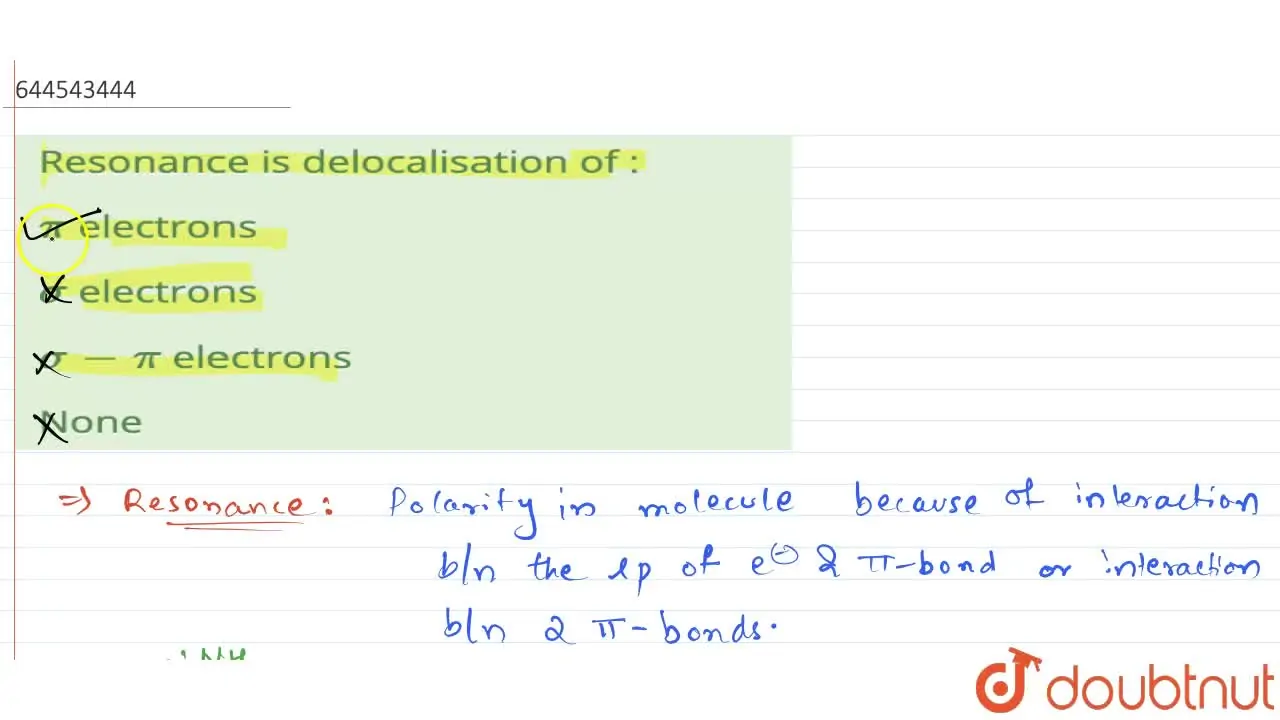 644543444
Resonance is delocalisation of :
π electrons
σ electrons
σ − π electrons
None
⇒ Resonance: Polarity in molecule because of interaction
b/n the lp of e⊖ & π-bond or interaction
b/n 2 π-bonds.
doubtnut